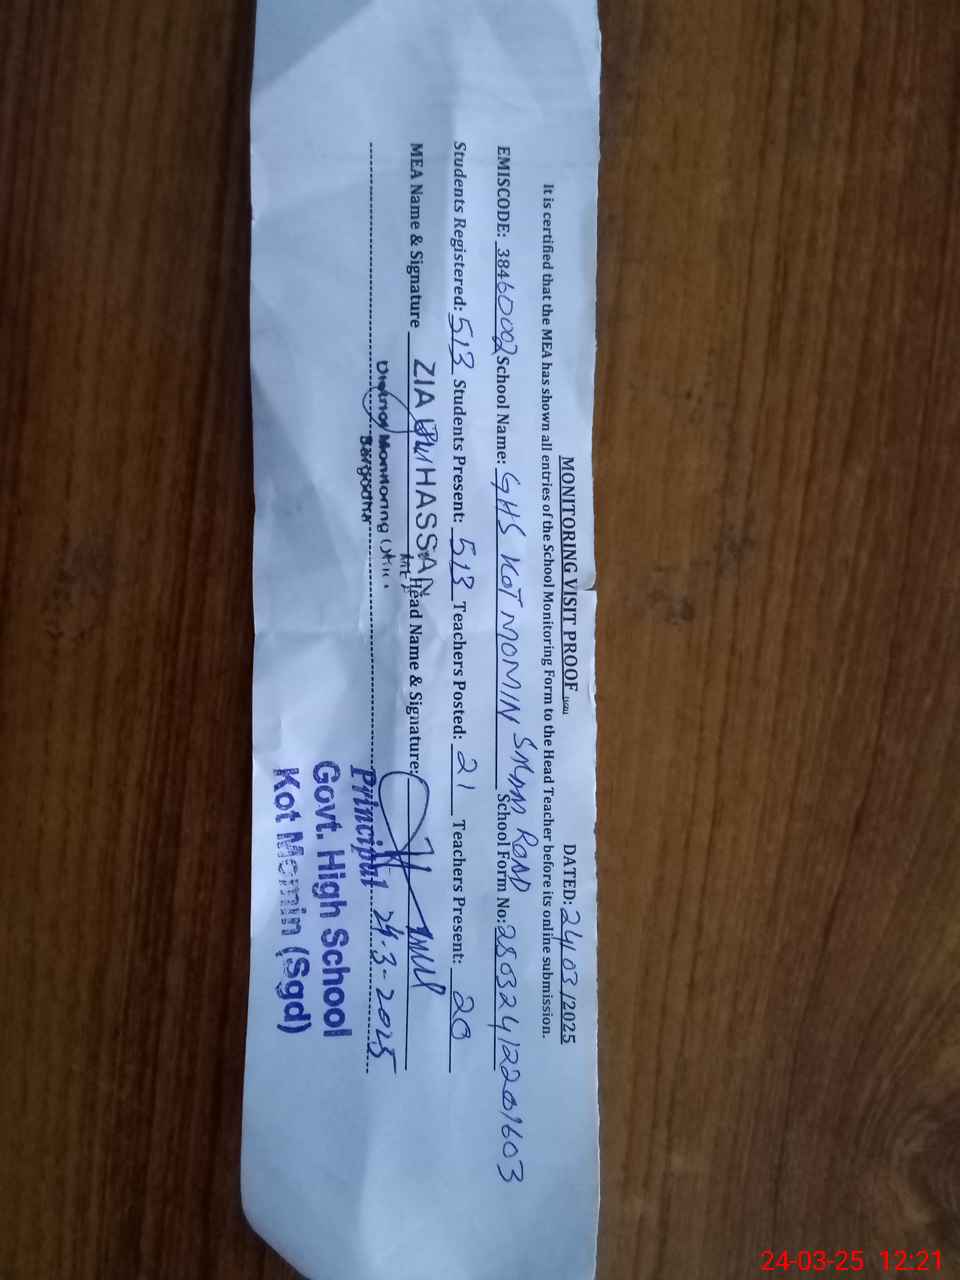 MONITORING VISIT PROOF DATED: 24/03/2025
It is certified that the MEA has shown all entries of the School Monitoring Form to the Head Teacher before its online submission.
EMISCODE: 38460002 School Name: GHS KOT MOMIN ROAD School Form No:
Students Registered: 513 Students Present: 513 Teachers Posted: 21 Teachers Present: 20
MEA Name & Signature ZIA HASSAN Head Name & Signature:
MEA
District Monitoring
Sargodha
Principal 24-3-2025
Govt. High School
Kot Momin (Sgd)
24-03-25 12:21